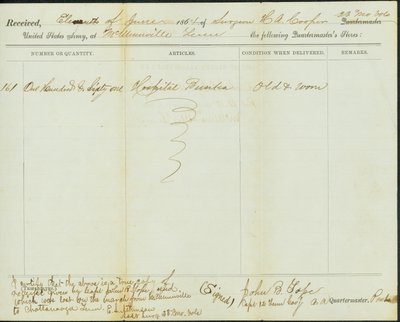 23 Mo Vols
Received, Eleventh of 1864 of Surgeon H. A. Cooper Quartermaster
United States Army, at McMinnville Tenn the following Quartermaster's Stores:
NUMBER OR QUANTITY. ARTICLES. CONDITION WHEN DELIVERED. REMARKS.
161 One Hundred & Sixty one Hospital Old & Worn
I certify that the above is a true copy of
receipt given by Capt John B. Pope and
(DUPLICATES.)
which was lost on the march from McMinnville
to Chattanooga Tenn.
Asst Surg 23 Mo. Vols
(Signed) John B Pope
Capt 12 Tenn Cavy A. A. Quartermaster,